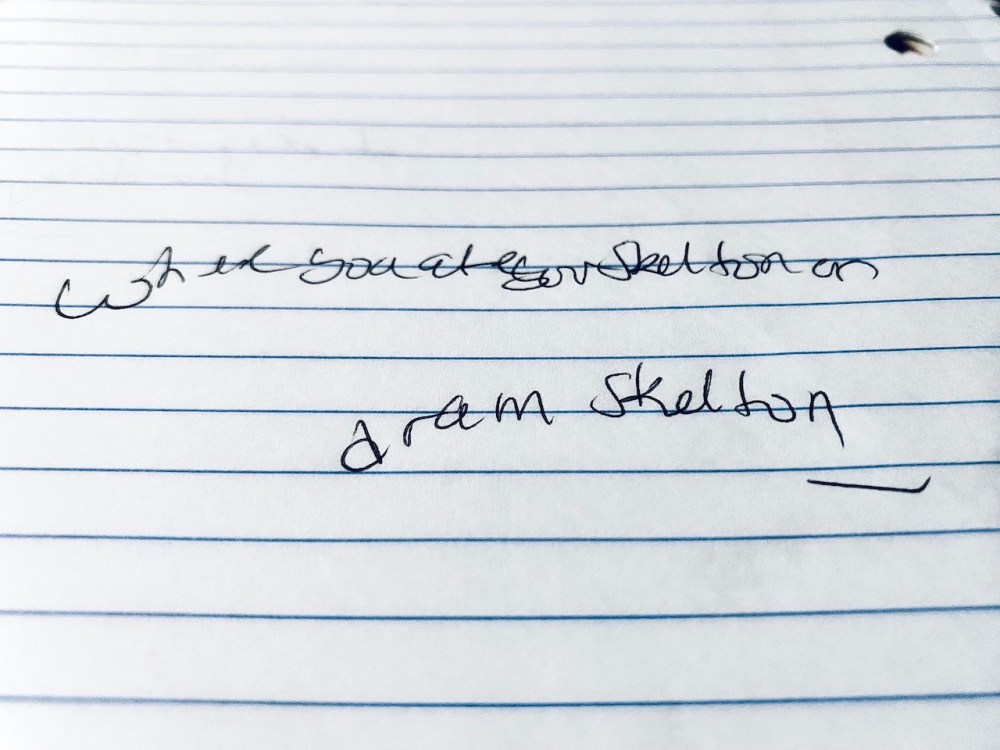 when you ate your skelton an
dram skelton